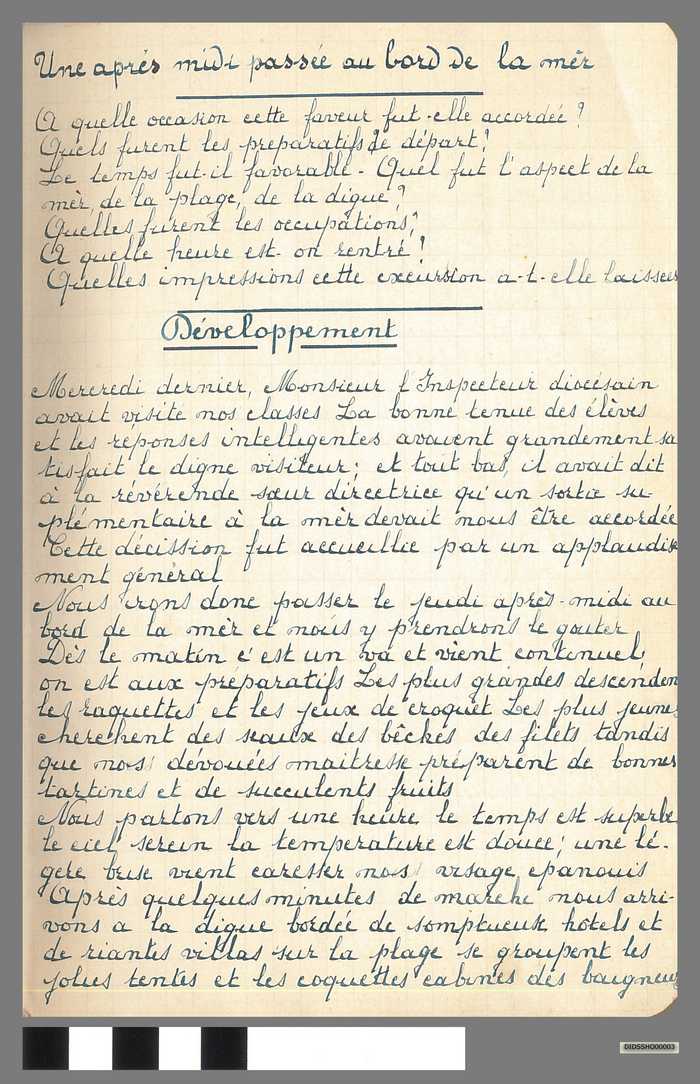 Une après midi passée au bord de la mèr
A quelle occasion cette faveur fut-elle accordée ?
Quels furent les preparatifs de départ ?
Le temps fut-il favorable - Quel fut l'aspect de la
mèr, de la plage, de la digue ?
Quelles furent les occupations ?
A quelle heure est-on rentré ?
Quelles impressions cette excursion a-t-elle laissées
Développement
Mercredi dernier, Monsieur l'Inspecteur diocésain
avait visité nos classes La bonne tenue des élèves
et les réponses intelligentes avaient grandement sa
tisfait le digne visiteur; et tout bas, il avait dit
à la révérende sœur directrice qu'un sortie su-
plémentaire à la mèr devait nous être accordée
Cette décission fut accueillie par un applaudis
ment général
Nous irons donc passer le jeudi après-midi au
bord de la mèr et nous y prendrons le gouter
Dès le matin c'est un va et vient continuel,
on est aux préparatifs Les plus grandes descenden
les raquettes et les jeux de croquet Les plus jeunes
cherchent des seaux des bêches des filets tandis
que nos dévouées maitresse préparent de bonnes
tartines et de succulents fruits
Nous partons vers une heure, le temps est superbe
le ciel serein la temperature est douce; une lé-
gere brise vient caresser nos visage epanouis
Après quelques minutes de marche nous arri-
vons a la digue bordée de somptueuse hôtels et
de riantes villas sur la plage se groupent les
jolies tentes et les coquettes cabines des baigneurs
DIDSSHO00003